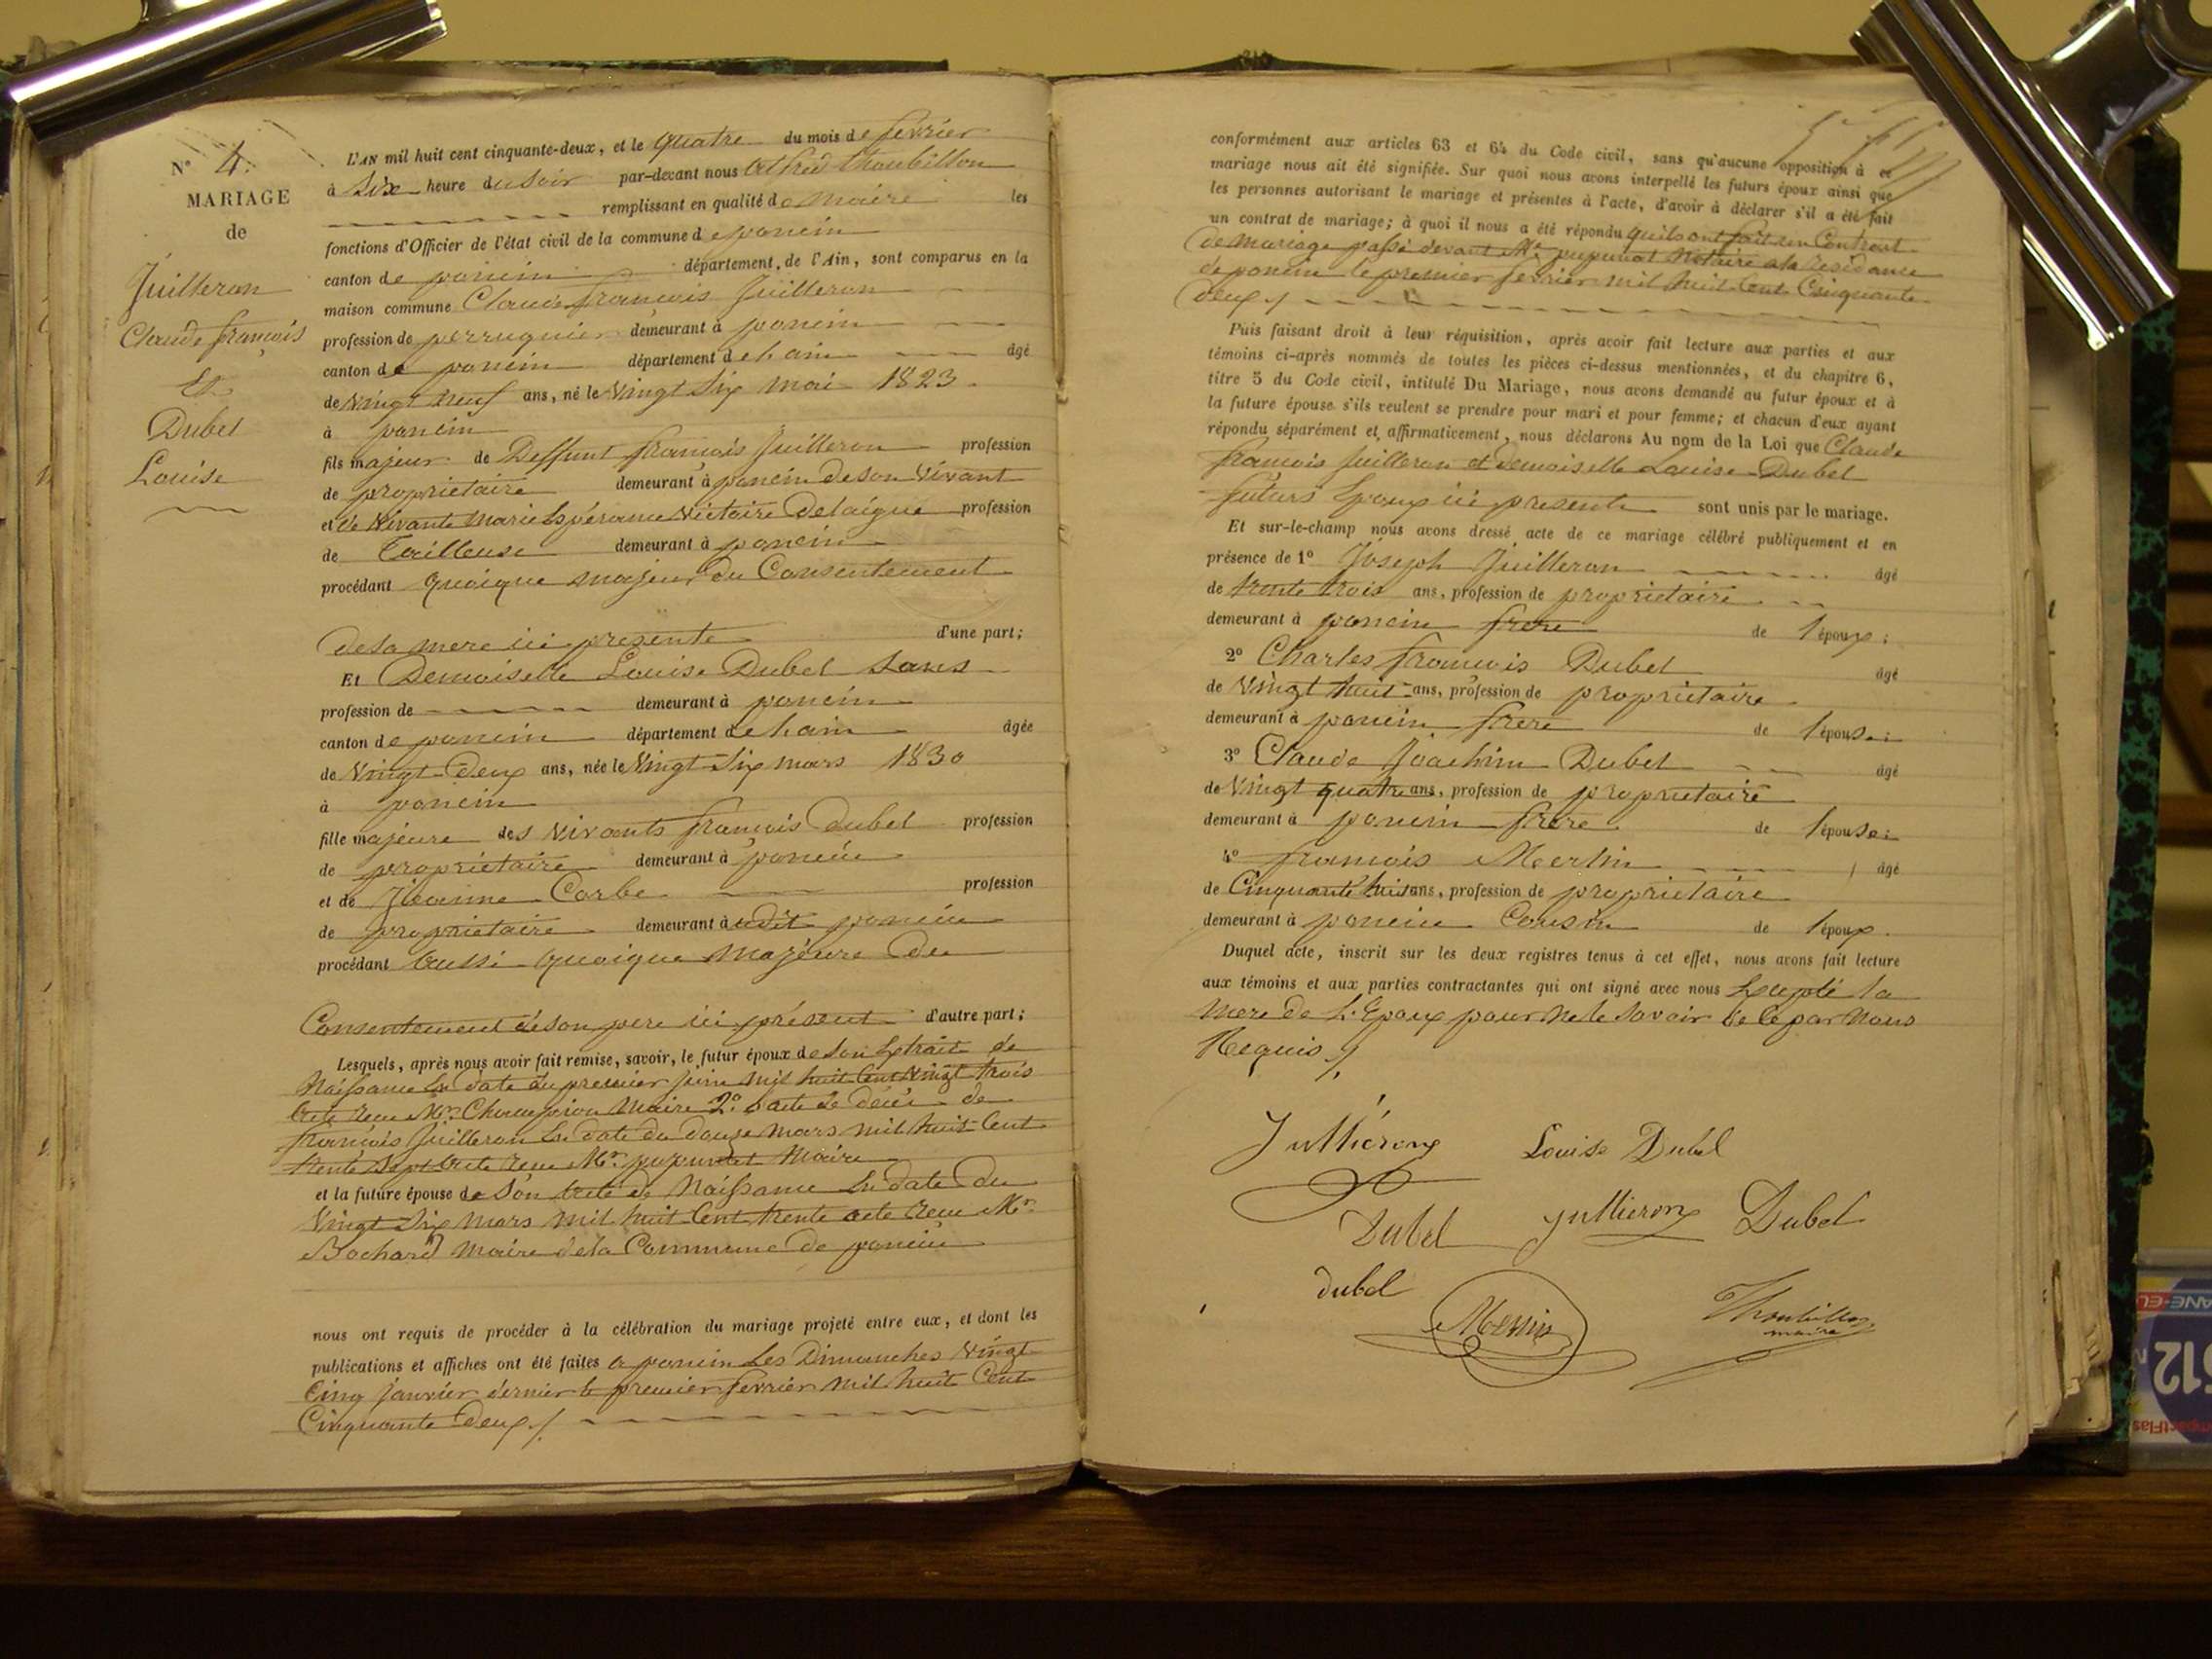 N° 4.
MARIAGE
de
Juilleron
Claude françois
Et
Dubel
Louise
L'AN mil huit cent cinquante-deux, et le quatre du mois de fevrier
à Six heure du Soir par-devant nous Alfred thoubillon
remplissant en qualité de Maire les
fonctions d'Officier de l'état civil de la commune de poncin
canton de poncin département de l'Ain, sont comparus en la
maison commune Claude françois Juilleron
profession de perruquier demeurant à poncin
canton de poncin département de lain âgé
de Vingt neuf ans, né le Vingt Six mai 1823.
à poncin
fils majeur de Deffunt françois Juilleron profession
de propriétaire demeurant à poncin de son Vivant
et de Vivante Marie Espérance Victoire Delaigue profession
de Tailleuse demeurant à poncin
procédant quoique majeur du Consentement
de sa mere ici presente d'une part;
Et Demoiselle Louise Dubel Sans
profession de demeurant à poncin
canton de poncin département de lain âgée
de Vingt-Deux ans, née le Vingt-Six mars 1830
à poncin
fille majeure des Vivants françois Dubel profession
de propriétaire demeurant à poncin
et de Jeanne Corbe profession
de propriétaire demeurant à udit poncin
procédant aussi quoique majeure du
Consentement de son pere ici présent d'autre part;
Lesquels, après nous avoir fait remise, savoir, le futur époux de son Extrait de
Naissance En date du premier juin mil huit Cent Vingt trois
acte recu Mr. Champion Maire 2° acte de décès de
françois Juilleron En date du douze mars mil huit Cent
trente Sept acte recu Mr. Maire
et la future épouse de Son acte de Naissance En date du
Vingt-Six mars mil huit Cent trente acte recu Mr.
Bochard Maire de la Commune de poncin
nous ont requis de procéder à la célébration du mariage projeté entre eux, et dont les
publications et affiches ont été faites a poncin Les Dimanches Vingt
Cinq janvier dernier le premier fevrier mil huit Cent
Cinquante Deux ./.
conformément aux articles 63 et 64 du Code civil, sans qu'aucune opposition à ce
mariage nous ait été signifiée. Sur quoi nous avons interpellé les futurs époux ainsi que
les personnes autorisant le mariage et présentes à l'acte, d'avoir à déclarer s'il a été fait
un contrat de mariage; à quoi il nous a été répondu quils ont fait un Contrat
de Mariage passé devant Me. Notaire a la residance
de poncin le premier fevrier mil huit Cent Cinquante
Deux ./
Puis faisant droit à leur réquisition, après avoir fait lecture aux parties et aux
témoins ci-après nommés de toutes les pièces ci-dessus mentionnées, et du chapitre 6,
titre 5 du Code civil, intitulé Du Mariage, nous avons demandé au futur époux et à
la future épouse s'ils veulent se prendre pour mari et pour femme; et chacun d'eux ayant
répondu séparément et affirmativement, nous déclarons Au nom de la Loi que Claude
françois Juilleron et demoiselle Louise Dubel
futurs Epoux ici presents sont unis par le mariage.
Et sur-le-champ nous avons dressé acte de ce mariage célébré publiquement et en
présence de 1° Joseph Juilleron âgé
de trente trois ans, profession de propriétaire
demeurant à poncin frere de l'époux;
2° Charles françois Dubel âgé
de Vingt huit ans, profession de propriétaire
demeurant à poncin frere de l'épouse;
3° Claude Joachim Dubel âgé
de Vingt quatre ans, profession de propriétaire
demeurant à poncin frere de l'épouse;
4° françois Merlin âgé
de Cinquante ans, profession de propriétaire
demeurant à poncin Cousin de l'époux.
Duquel acte, inscrit sur les deux registres tenus à cet effet, nous avons fait lecture
aux témoins et aux parties contractantes qui ont signé avec nous Excepté la
Mere de L'Epoux pour ne le Savoir de ce par Nous
Requis ./.
Jullieron Louise Dubel
Dubel Jullieron Dubel
dubel
Thoubillon
maire
512